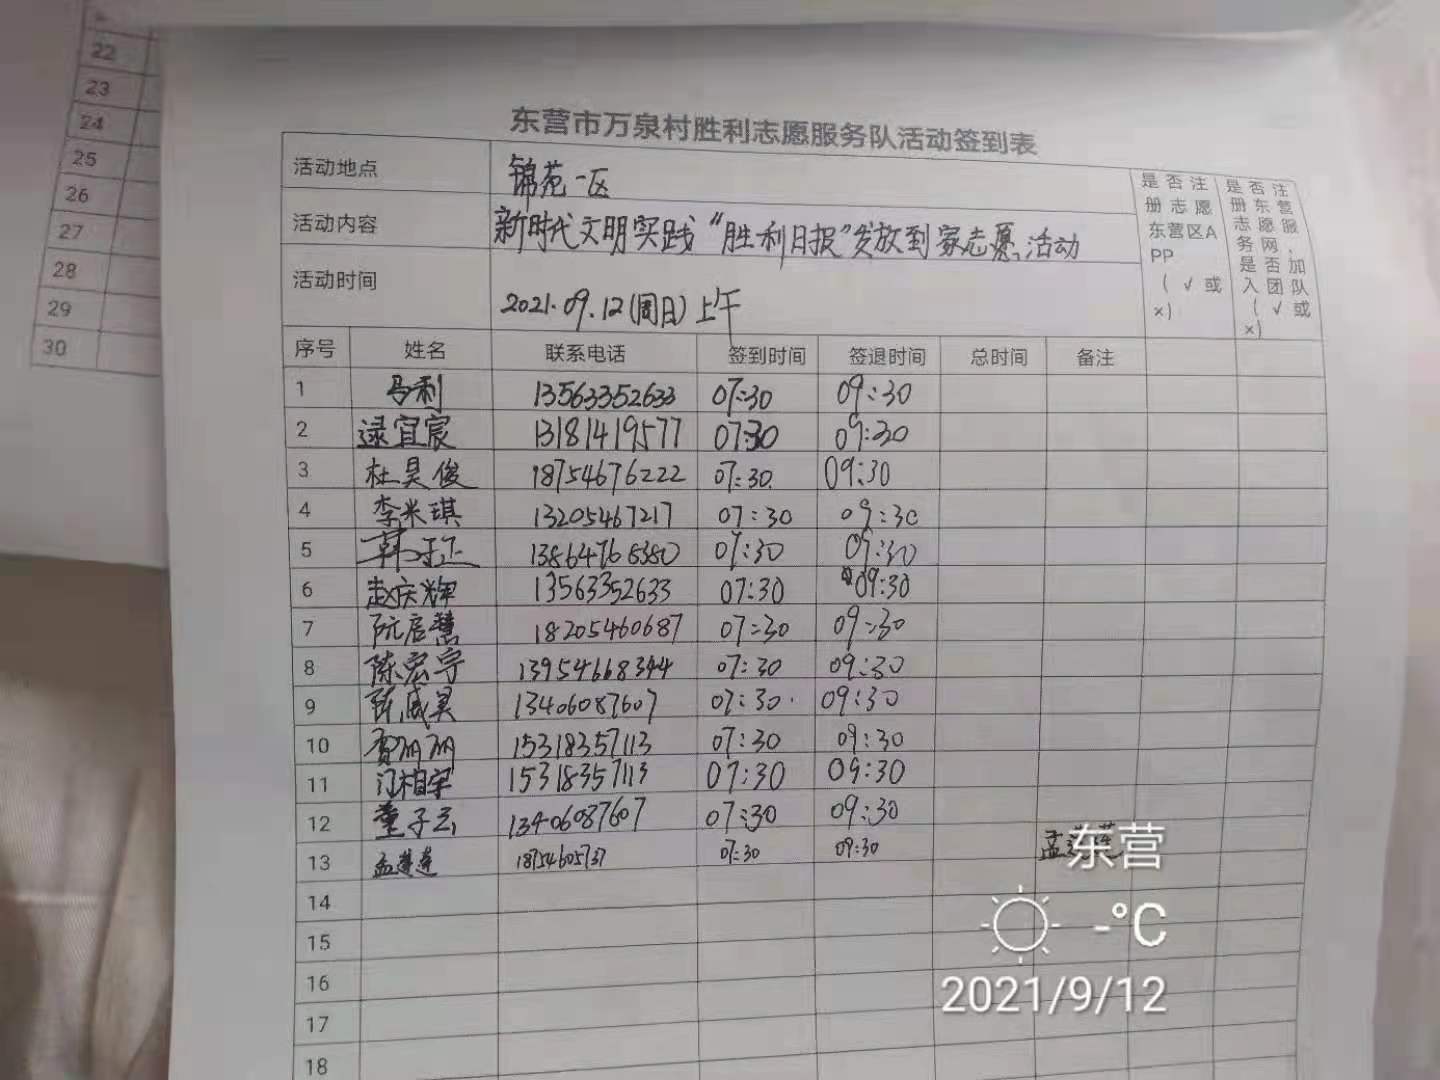 22
23
24
25
26
27
28
29
30
东营市万泉村胜利志愿服务队活动签到表
活动地点 锦苑一区
活动内容 新时代文明实践“胜利日报”发放到家志愿活动
活动时间 2021.09.12(周日)上午
是否注
册志愿
东营区A
PP
(√或
×)
是否注
册东营
志愿服
务网、
是否加
入团队
(√或
×)
序号 姓名 联系电话 签到时间 签退时间 总时间 备注
1 马利 13563352633 07:30 09:30
2 逯宜宸 13181419577 07:30 09:30
3 杜昊俊 18754676222 07:30. 09:30
4 李米琪 13205467217 07:30 09:30
5 韩 07:30 09:30
6 赵庆辉 13563352633 07:30 09:30
7 阮启慧 18205460687 07:30 09:30
8 陈宏宇 13954668344 07:30 09:30
9 陈威昊 13406087607 07:30. 09:30
10 贾丽丽 15318357113 07:30 09:30
11 门相宇 15318357113 07:30 09:30
12 董子云 13406087607 07:30 09:30
13 孟莲莲 07:30 09:30 孟莲莲
14
15
16
17
18
东营
-°C
2021/9/12